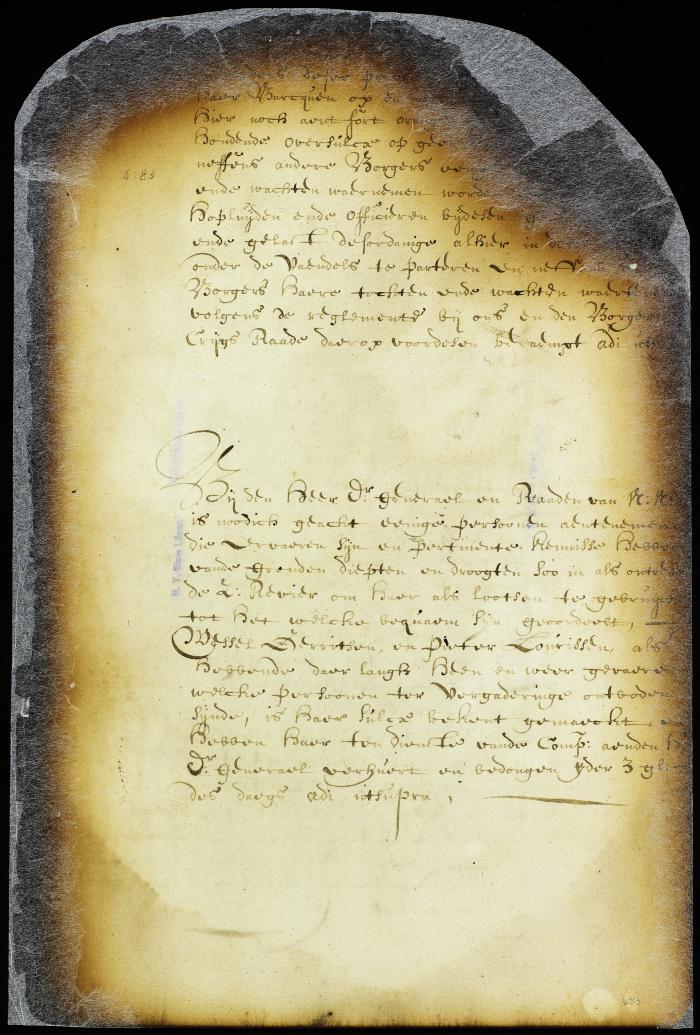 deser
haer Barcquen op
hier noch aent fort
houdende oversulcx op
neffens andere Borgers
ende wachten waernemen
hopluijden ende officieren bijdesen
ende gelast desodanige alhier in
onder de Vaendels te parteren en neff
Borgers haere tochten ende wachten
volgens de reglemente bij ons en den Borge
Crijgs Raade daerop voordesen beraempt Adi
6:83
Bij den heer Dr generael en Raaden van N: N
is noodich geacht eenige persoonen aentenemen
die ervaeren sijn en pertinente kennisse hebben
vande gronden diepten en droogten soo in als
de Z: Revier om haer als lootsen te gebruij
tot het welcke bequaem sijn geoordeelt,
Wessel Gerritsen, en Pieter Lourissen, als
hebbende daer langh heen en weer gevaere
welcke persoonen ter vergaderinge ontboden
sijnde, is haer sulcx bekent gemaeckt
hebben haer ten dienste vande Comp: aenden
Dr generael verhuert en bedongen yder 3 gl
des daegs Adi utsupra,
N.Y. State Library
683